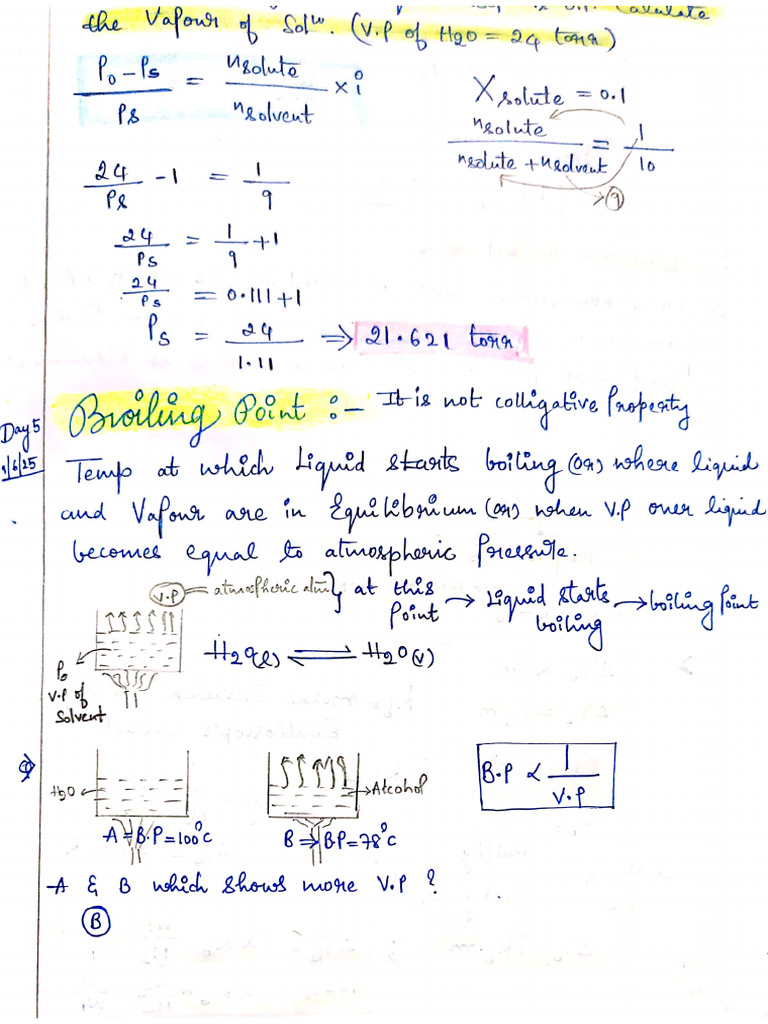 is Calculate
the Vapour of Solⁿ. (V.P of H2O = 24 torr)
P₀ - Ps / Ps = nsolute / nsolvent × i
Xsolute = 0.1
nsolute / nsolute + nsolvent = 1 / 10
9
24 / Ps - 1 = 1 / 9
24 / Ps = 1 / 9 + 1
24 / Ps = 0.111 + 1
Ps = 24 / 1.11 ⇒ 21.621 torr
Day 5
Broiling Point :- It is not colligative Property
Temp at which Liquid starts boiling (or) where liquid
and Vapour are in Equilibrium (or) when V.P over liquid
becomes equal to atmospheric Pressure.
V.P = atmospheric atm } at this Point → Liquid starts boiling → boiling Point
H2O(l) ⇌ H2O(v)
P₀
V.P of
Solvent
Q)
H2O
Alcohol
B.P ∝ 1 / V.P
A ⇒ B.P = 100°C
B ⇒ B.P = 78°C
A & B which shows more V.P ?
B